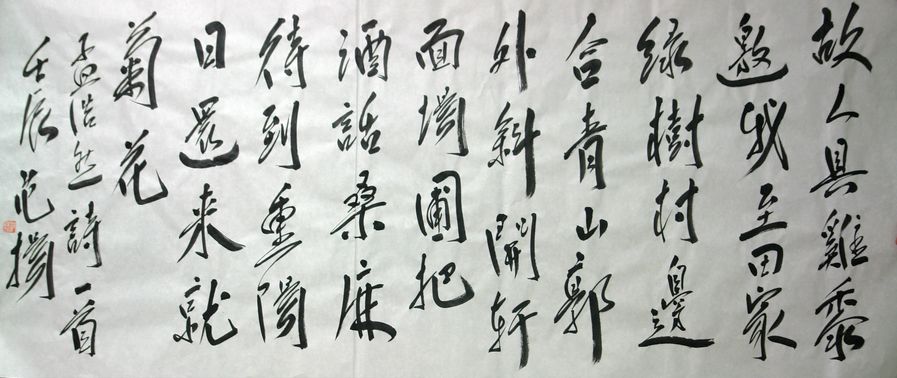 故人具雞黍
邀我至田家
綠樹村邊
合青山郭
外斜開軒
面場圃把
酒話桑麻
待到重陽
日還來就
菊花
孟浩然詩一首
壬辰范